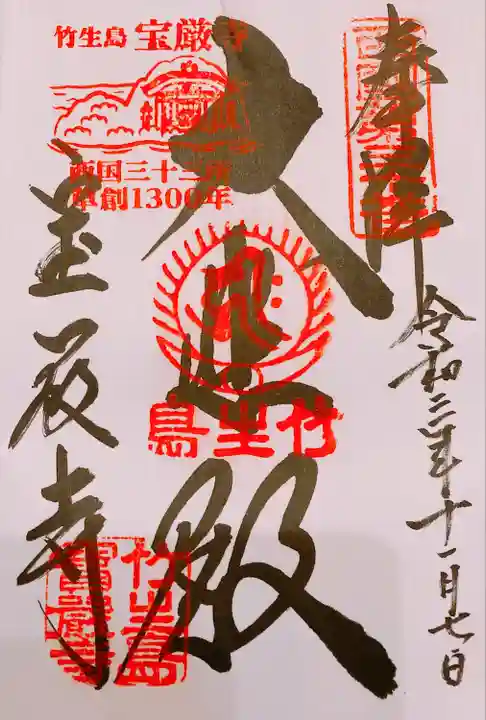 奉拝
西国第三十番
令和二年十一月七日
大悲殿
竹生島
竹生島 宝厳寺
西国三十三所
草創1300年
宝厳寺
竹生島
寳嚴寺